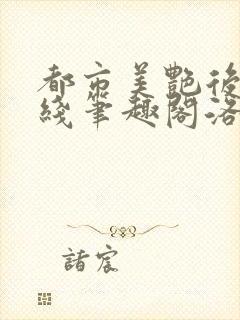 都市美艷後
綫筆趣閣洛
諸宸